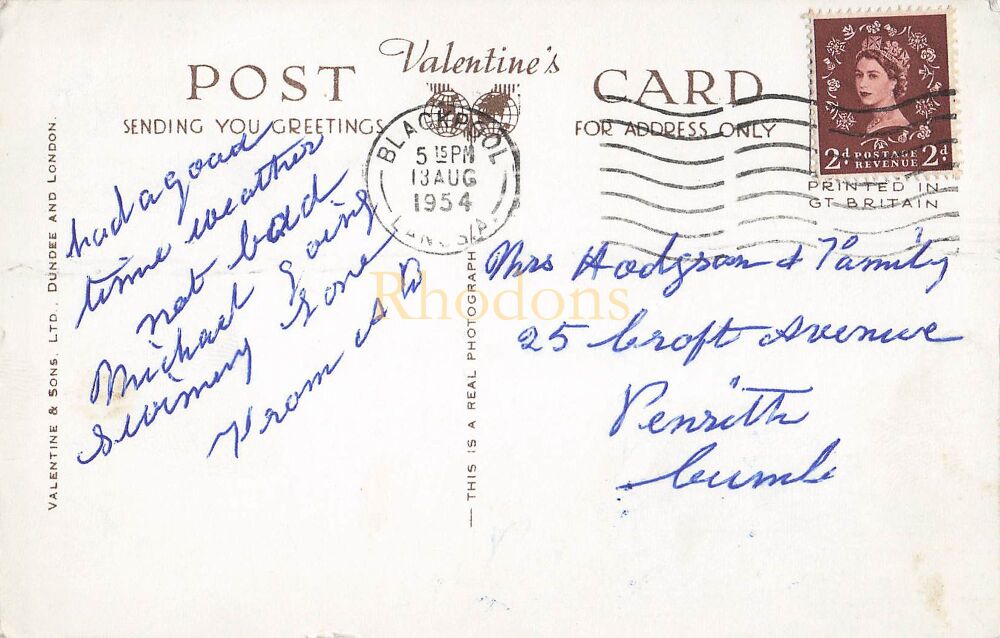 Valentine's
POST CARD
SENDING YOU GREETINGS
FOR ADDRESS ONLY
BLACKPOOL
5 15 PM
13 AUG
1954
LANCS/A
2d POSTAGE 2d
REVENUE
PRINTED IN
GT BRITAIN
VALENTINE & SONS, LTD., DUNDEE AND LONDON.
had a good
time weather
not bad
Michael going
swimmy
From
THIS IS A REAL PHOTOGRAPH
Mrs Hodgson & Family
25 Croft Avenue
Penrith
Cumb
Rhodons